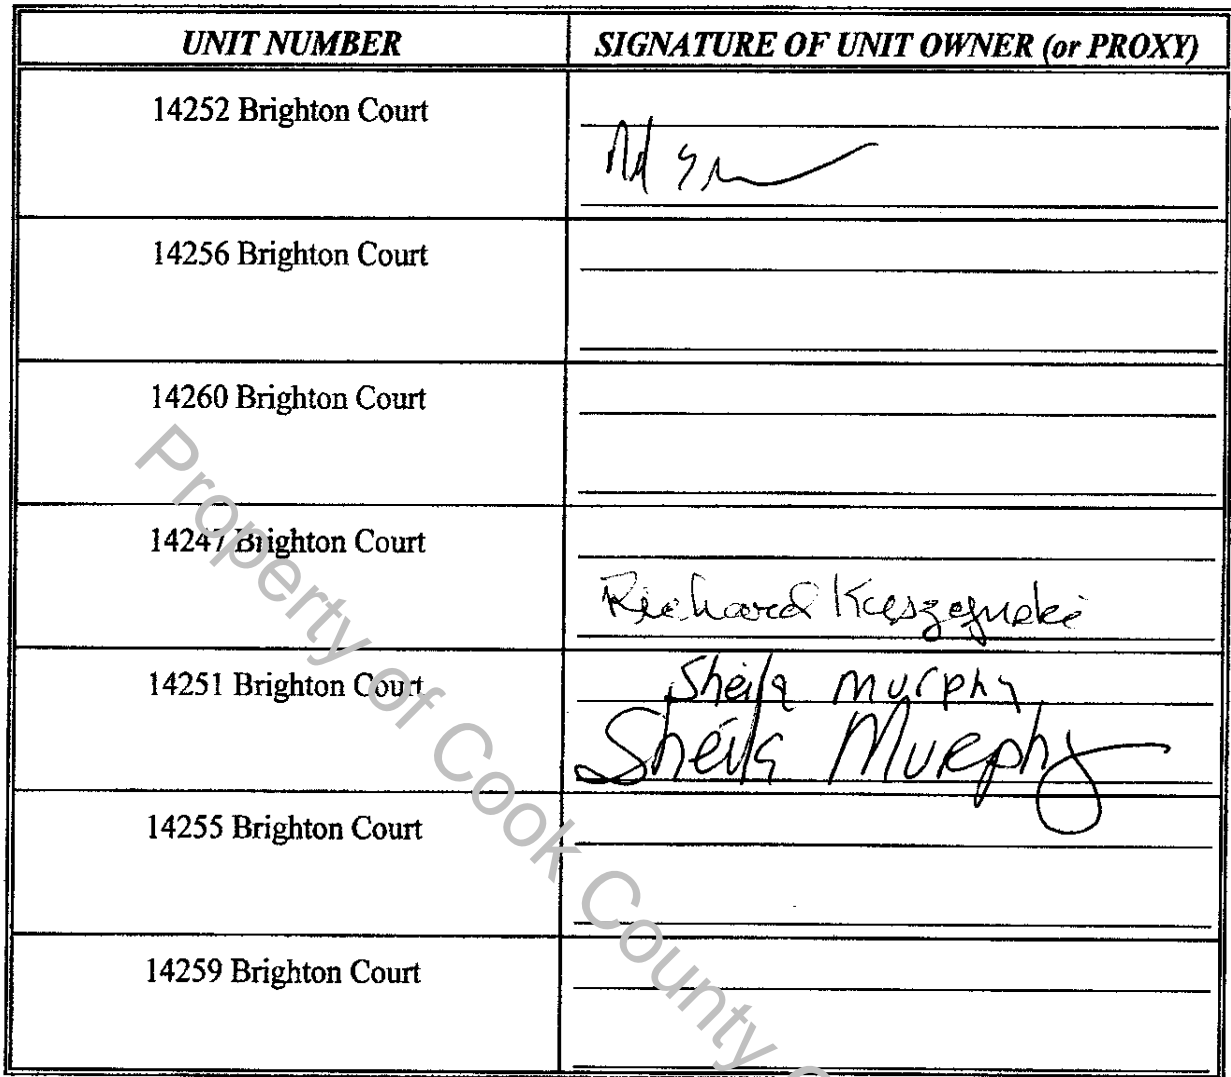 UNIT NUMBER SIGNATURE OF UNIT OWNER (or PROXY)
14252 Brighton Court
14256 Brighton Court
14260 Brighton Court
14247 Brighton Court
Richard
14251 Brighton Court Sheila Murphy
Sheila Murphy
14255 Brighton Court
14259 Brighton Court
Property of Cook County